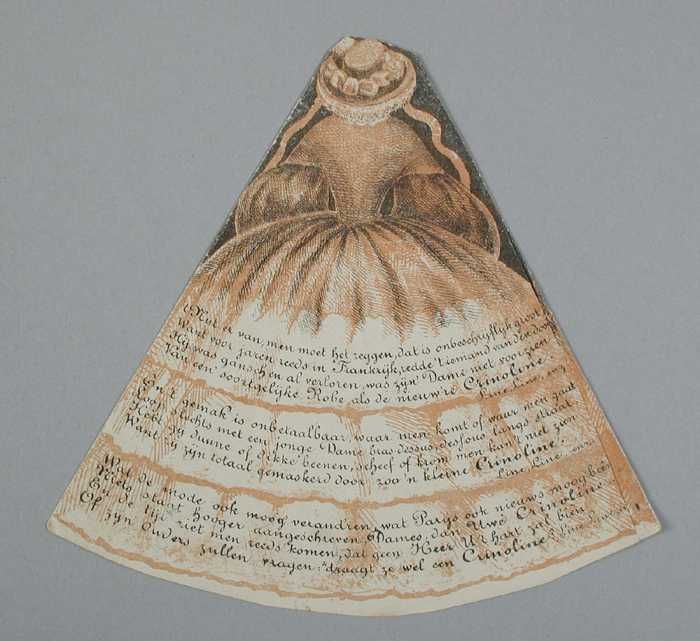 Nut er van, men moet het zeggen, dat is onbeschryflyk groot
Want voor jaren reeds in Frankryk, redde 't iemand van den dood
Hy was gansch en al verloren, was zyn Dame niet voorzien
Van een soortgelyke Robe, als de nieuwe Crinoline
Line, line, enz
gemak is onbetaalbaar, waar men komt of waar men gaat
rechts met een jonge Dame bras dessus dessous langs straat
Heeft zy dunne of dikke beenen, scheef of krom men kan 't niet zien
Want zy zyn totaal gemaskerd door zoo'n kleine Crinoline
Line, line
Wat de mode ook moog verandren, wat Parys ook nieuws moog biên
Steeds hooger aangeschreven, Dames, dan Uwe Crinoline
En de tyd ziet men reeds komen, dat geen Heer U 't hart zal biên
Of zyn Ouders zullen vragen: "draagt ze wel een Crinoline
Line, line